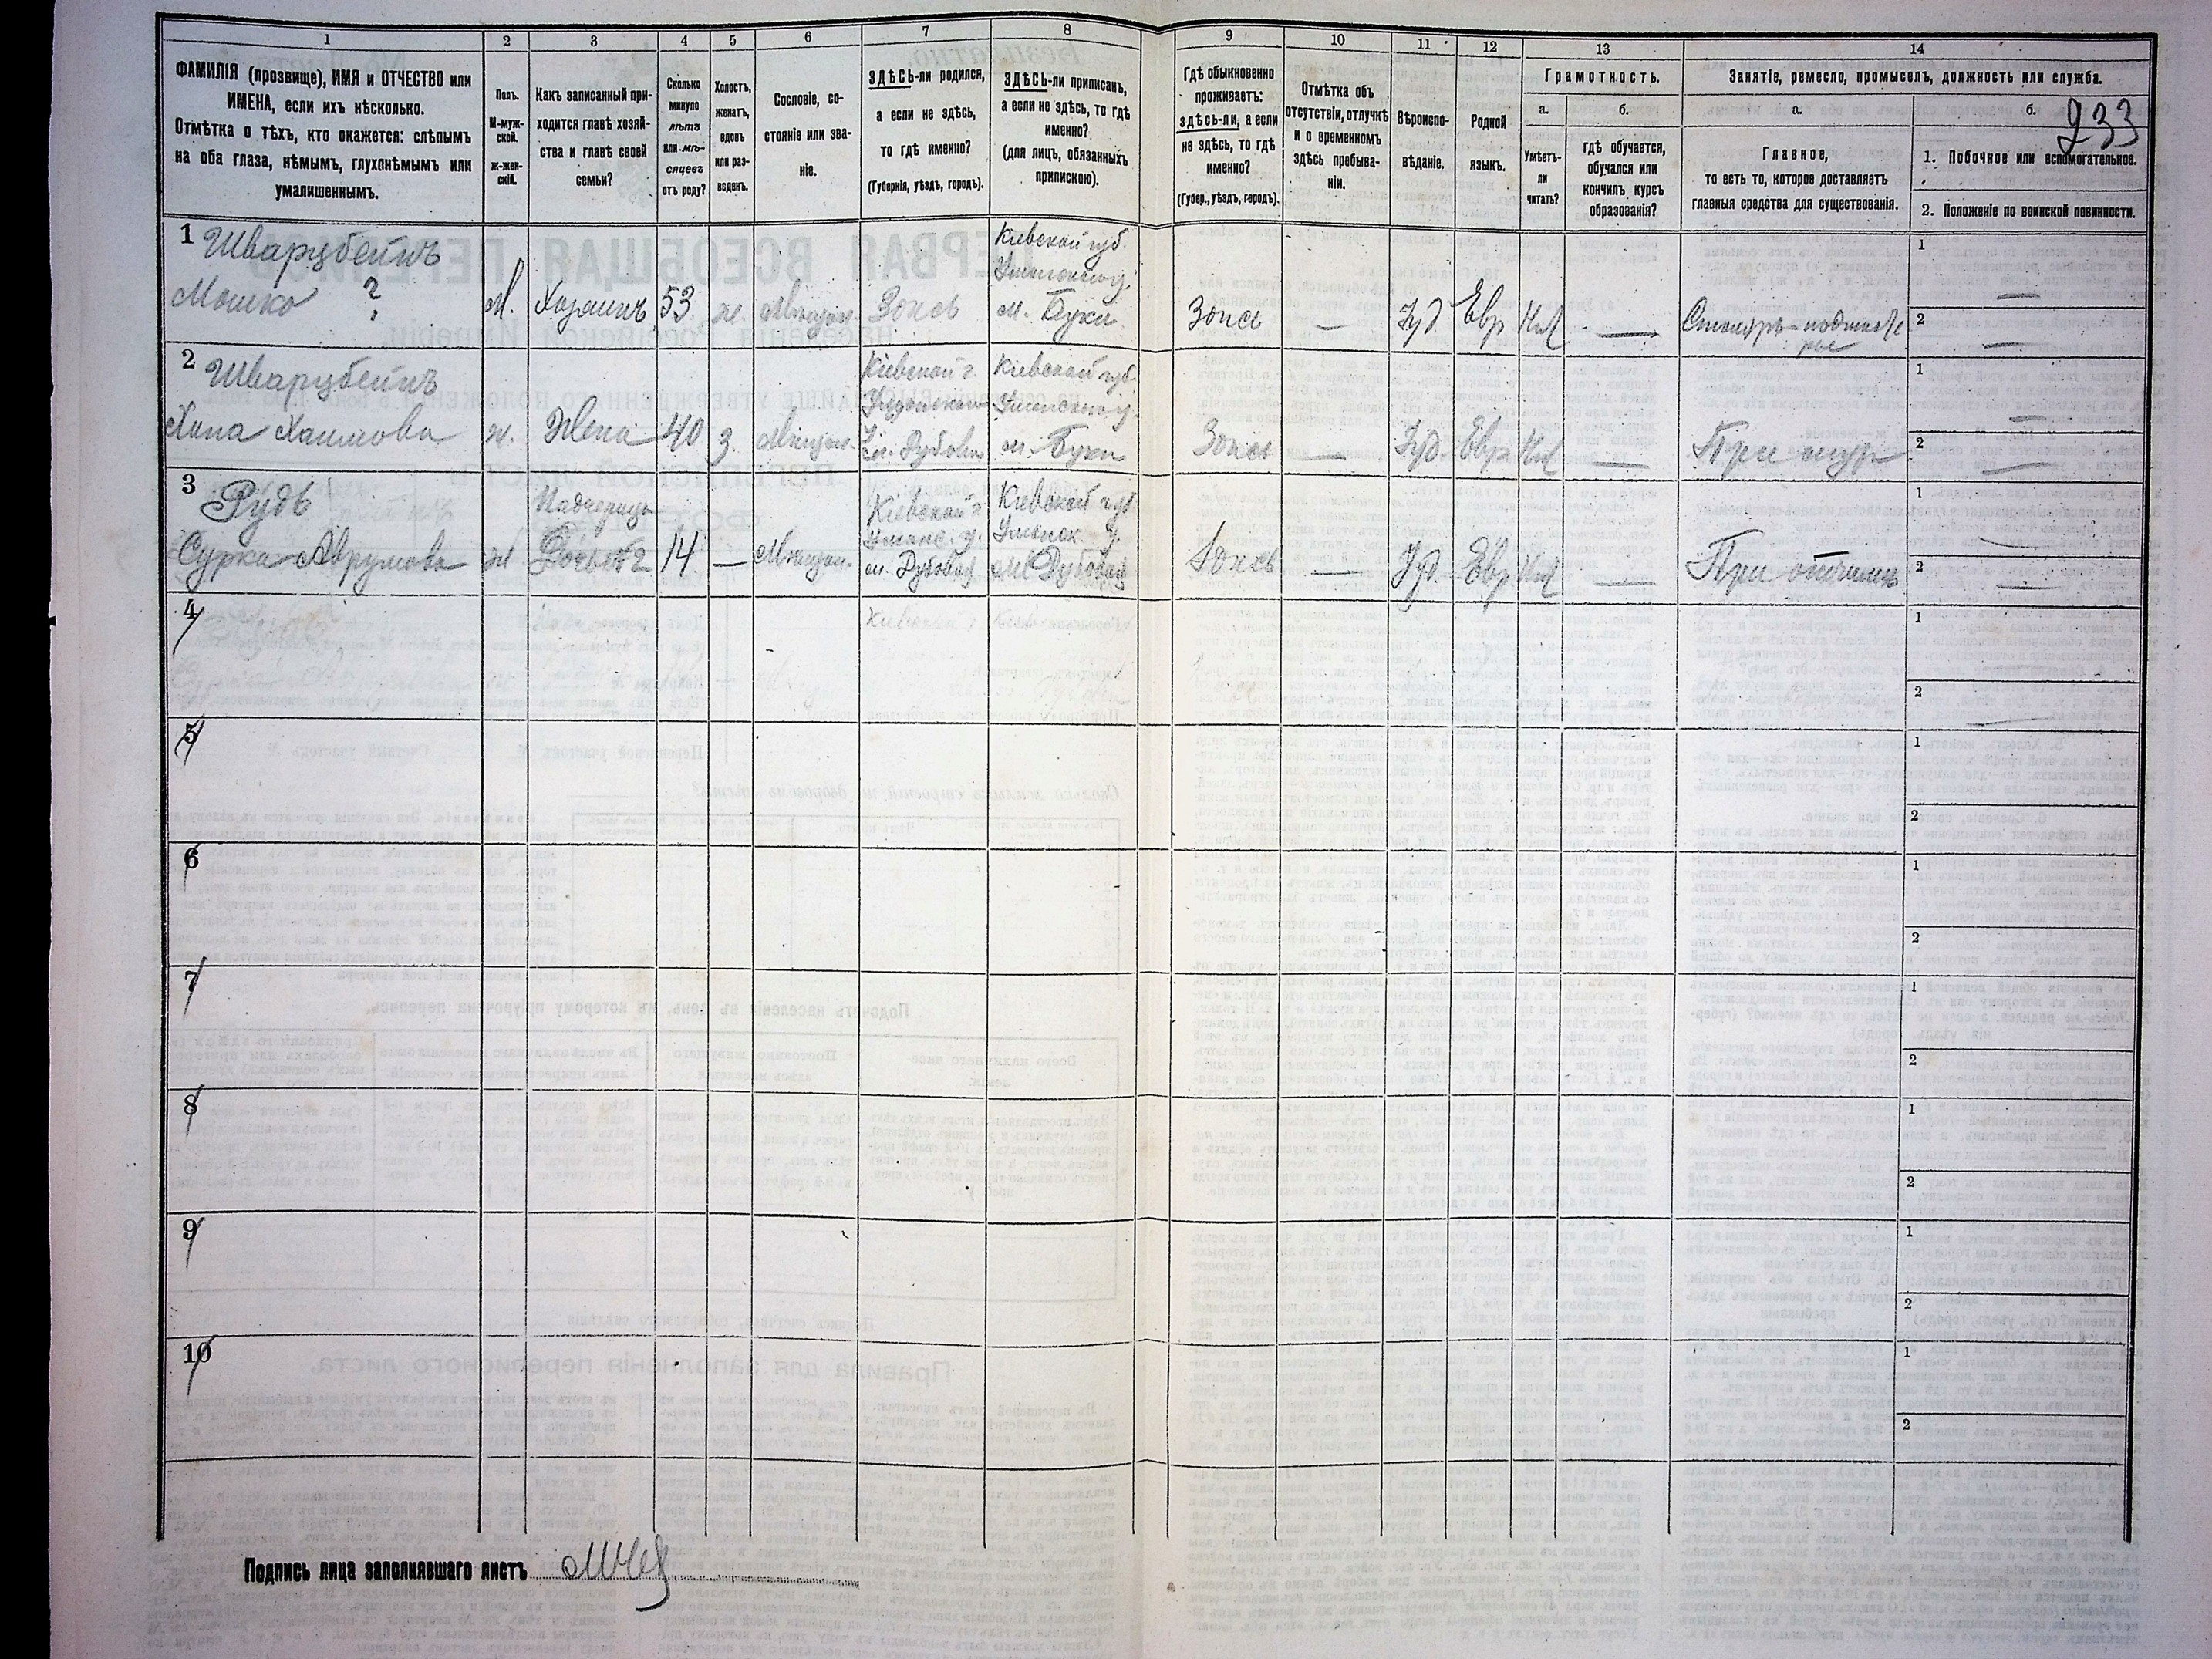 1 2 3 4 5 6 7 8 9 10 11 12 13 14
ФАМИЛІЯ (прозвище), ИМЯ и ОТЧЕСТВО или
ИМЕНА, если ихъ нѣсколько.
Отмѣтка о тѣхъ, кто окажется: слѣпымъ
на оба глаза, нѣмымъ, глухонѣмымъ или
умалишеннымъ.
Полъ.
М-муж-
ской.
ж-жен-
скій.
Какъ записанный при-
ходится главѣ хозяй-
ства и главѣ своей
семьи?
Сколько
минуло
лѣтъ
или мѣ-
сяцевъ
отъ роду?
Холостъ,
женатъ,
вдовъ
или раз-
веденъ.
Сословіе, со-
стояніе или зва-
ніе.
ЗДѢСЬ-ли родился,
а если не здѣсь,
то гдѣ именно?
(Губернія, уѣздъ, городъ).
ЗДѢСЬ-ли приписанъ,
а если не здѣсь, то гдѣ
именно?
(для лицъ, обязанныхъ
припискою).
Гдѣ обыкновенно
проживаетъ:
здѣсь-ли, а если
не здѣсь, то гдѣ
именно?
(Губер., уѣздъ, городъ).
Отмѣтка объ
отсутствіи, отлучкѣ
и о временномъ
здѣсь пребыва-
ніи.
Вѣроиспо-
вѣданіе.
Родной
языкъ.
Грамотность.
а.
Умѣетъ-
ли
читать?
б.
гдѣ обучается,
обучался или
кончилъ курсъ
образованія?
Занятіе, ремесло, промыселъ, должность или служба.
а.
Главное,
то есть то, которое доставляетъ
главныя средства для существованія.
б.
233
1. Побочное или вспомогательное.
2. Положеніе по воинской повинности.
1 Шварцбейнъ
Мошко ?
М. Хозяинъ 53 ж. Мѣщан. Здѣсь
Кіевской губ.
Уманскаго у.
м. Буки
Здѣсь — Іуд. Евр Нѣт —
Столяръ
1 —
2 —
2 Шварцбейнъ
Хана Хаимова
ж. Жена 40 з. Мѣщан.
Кіевской г.
м. Дубова
Кіевской губ.
Уманскаго у.
м. Буки
Здѣсь — Іуд. Евр Нѣт —
При муж
1 —
2 —
3 Рудь
Сурка Аврумова
ж
Падчерица
14 — Мѣщан.
Кіевской г.
Уманс. у.
м. Дубовая
Кіевской губ
Уманск. у.
м. Дубовая
Здѣсь — Іуд. Евр Нѣт —
При отчимѣ
1 —
2 —
4
1
2
5
1
2
6
1
2
7
1
2
8
1
2
9
1
2
10
1
2
Подпись лица заполнявшаго листъ